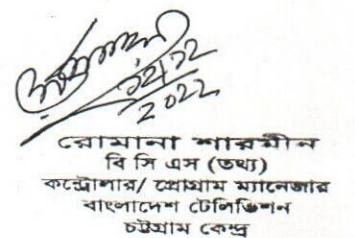 ১২/১২
২০২২
রোমানা শারমীন
বি সি এস (তথ্য)
কন্ট্রোলার/ প্রোগ্রাম ম্যানেজার
বাংলাদেশ টেলিভিশন
চট্টগ্রাম কেন্দ্র